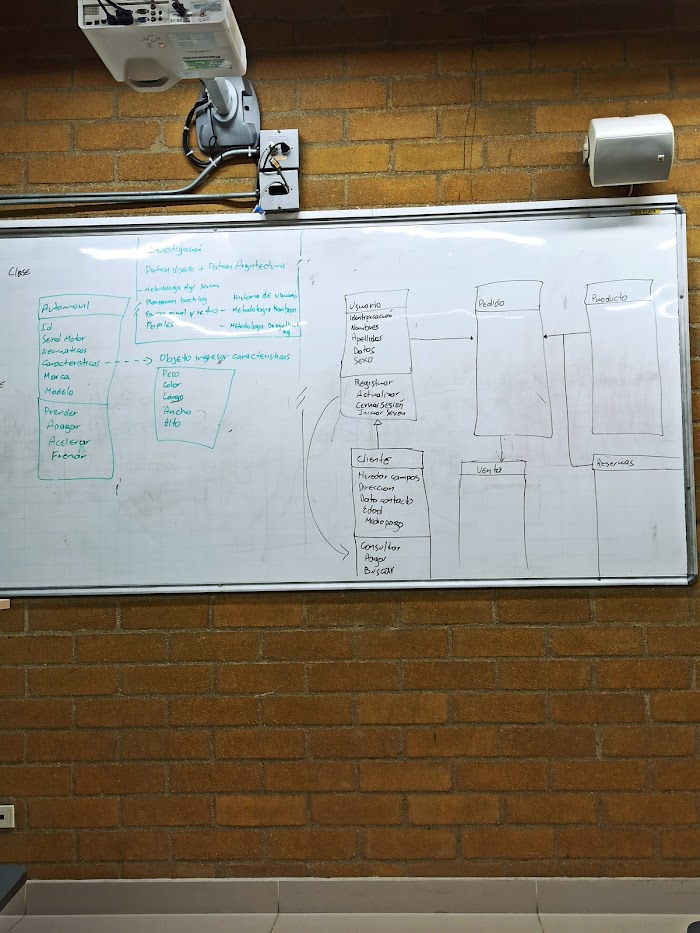 Clase
Automovil
Id
Serial Motor
Neumaticos
Caracteristicas
Marca
Modelo
Prender
Apagar
Acelerar
Frenar
Investigación
Patron diseño + Patron Arquitectura
- Metodologia Agil Scrum
Planeacion backlog
Historia de Usuario
- Metodologia Kanban
Perfiles
- Metodologia
Objeto ingresar caracteristicas
Peso
Color
Largo
Ancho
Alto
Usuario
Identificación
Nombres
Apellidos
Datos
Sexo
Registrar
Actualizar
Cerrar Sesión
Iniciar Sesion
Cliente
Heredar campos
Direccion
Dato contacto
Edad
Medio pago
Consultar
Pagar
Buscar
Pedido
Venta
Producto
Reservas